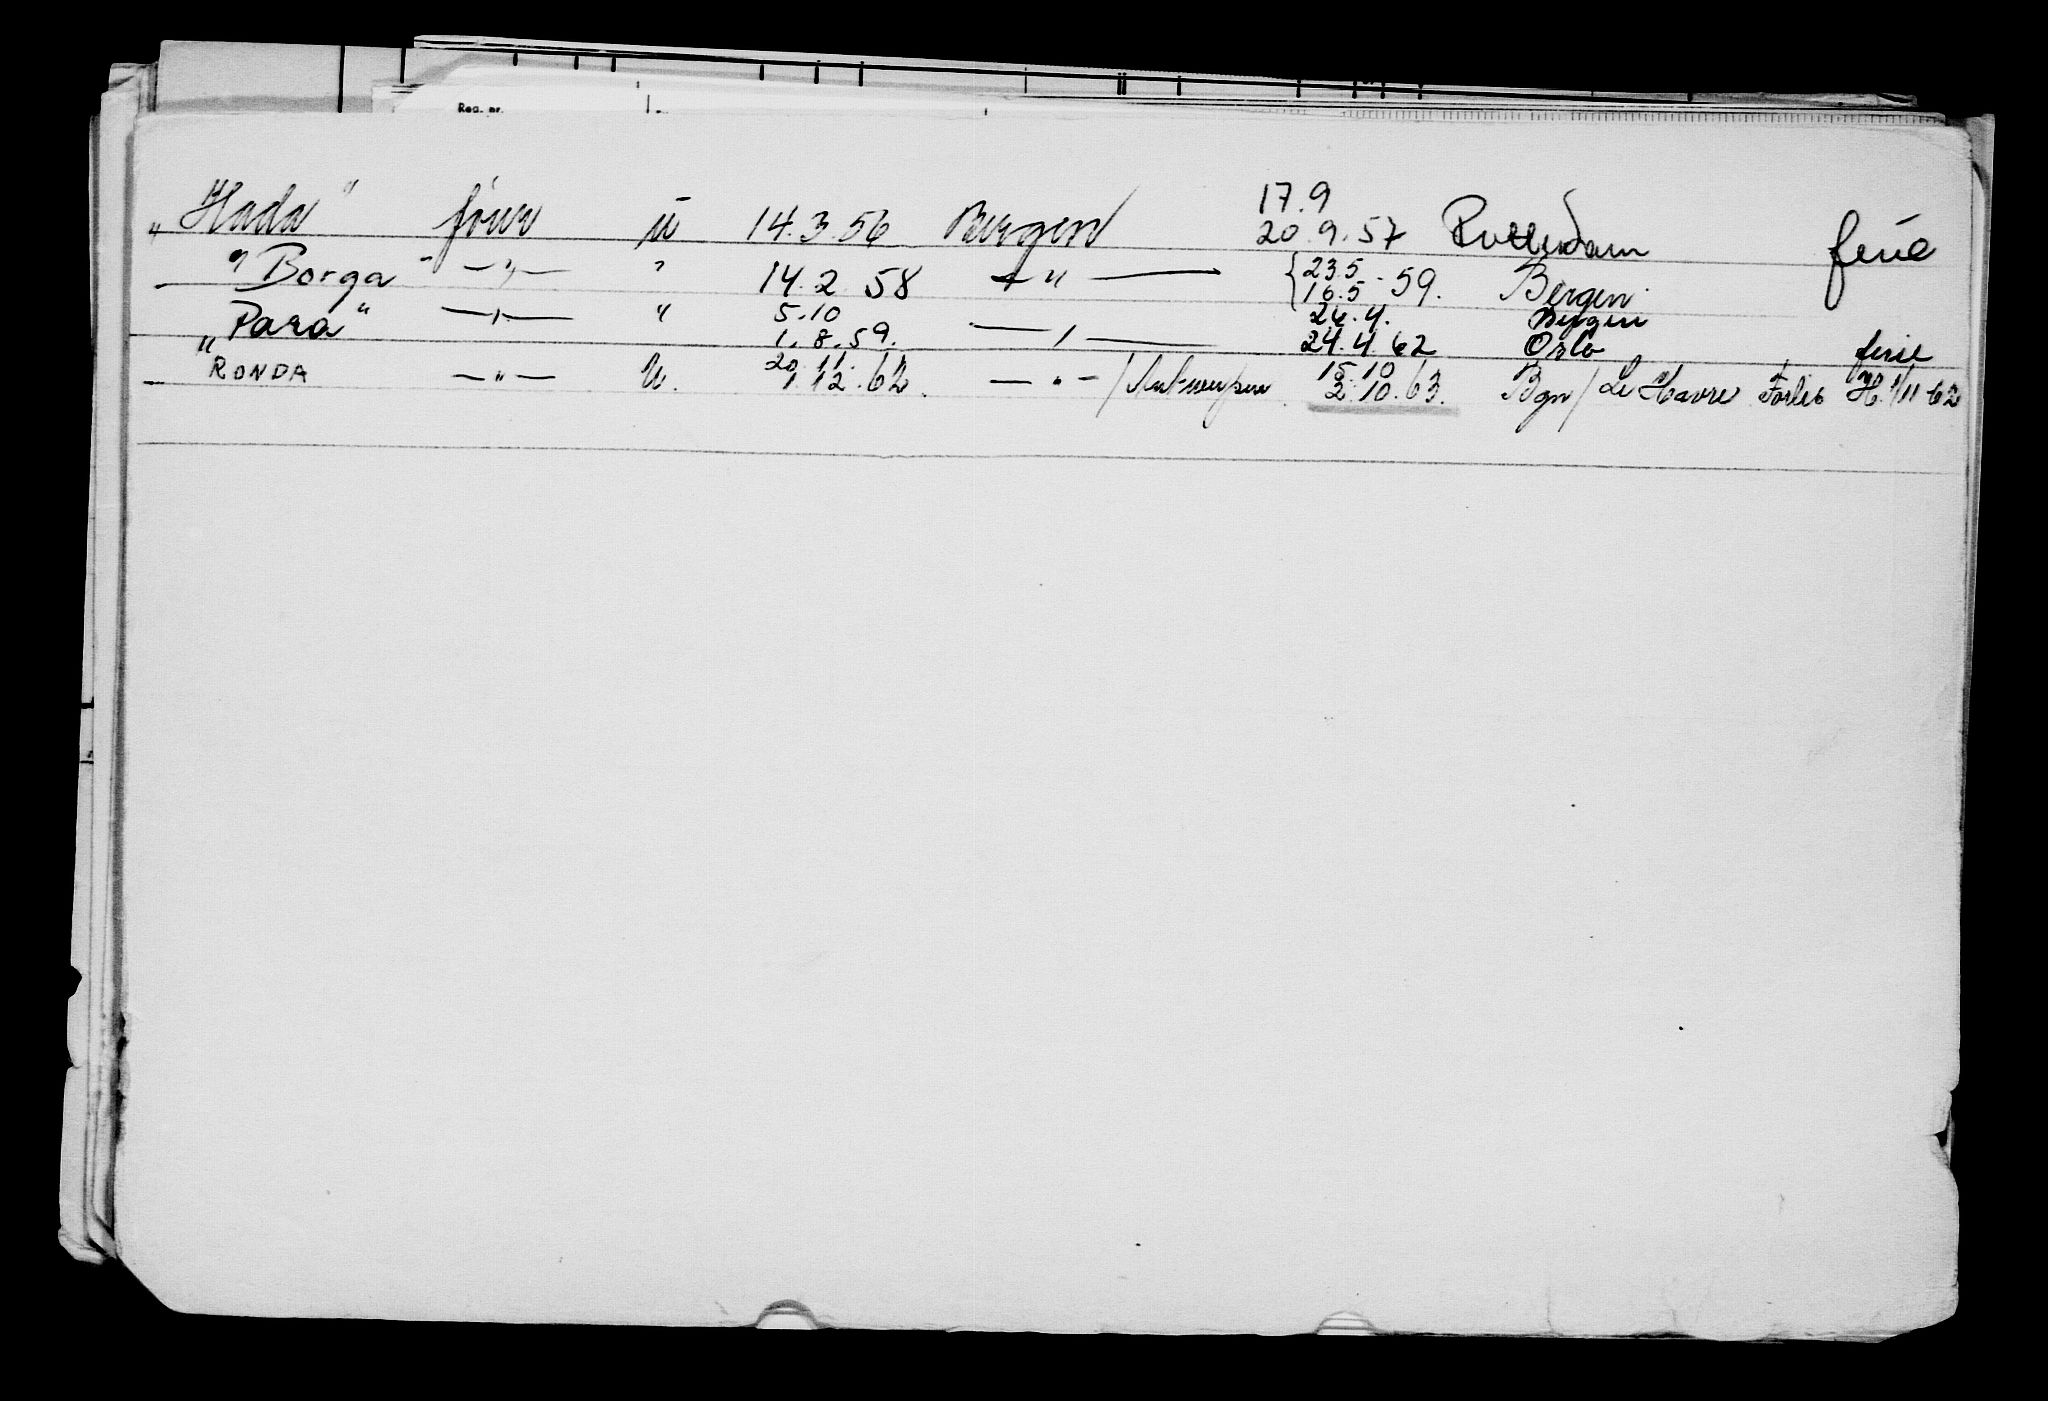 Reg. nr.
17.9
„Hada" u 14.3.56 Bergen 20.9.57 Rotterdam ferie
"Borga" —"— " 14.2.58 —"— {23.5 16.5 - 59. Bergen
5.10 24.4. Bergen
„Para" —"— " 1.8.59. —"— 24.4.62 Oslo ferie
20.11. 15.10
RONDA —"— U. 1.12.62. —"—/Antwerpen 2.10.63. Bgn/Le Havre Forlis H. 1/11-62